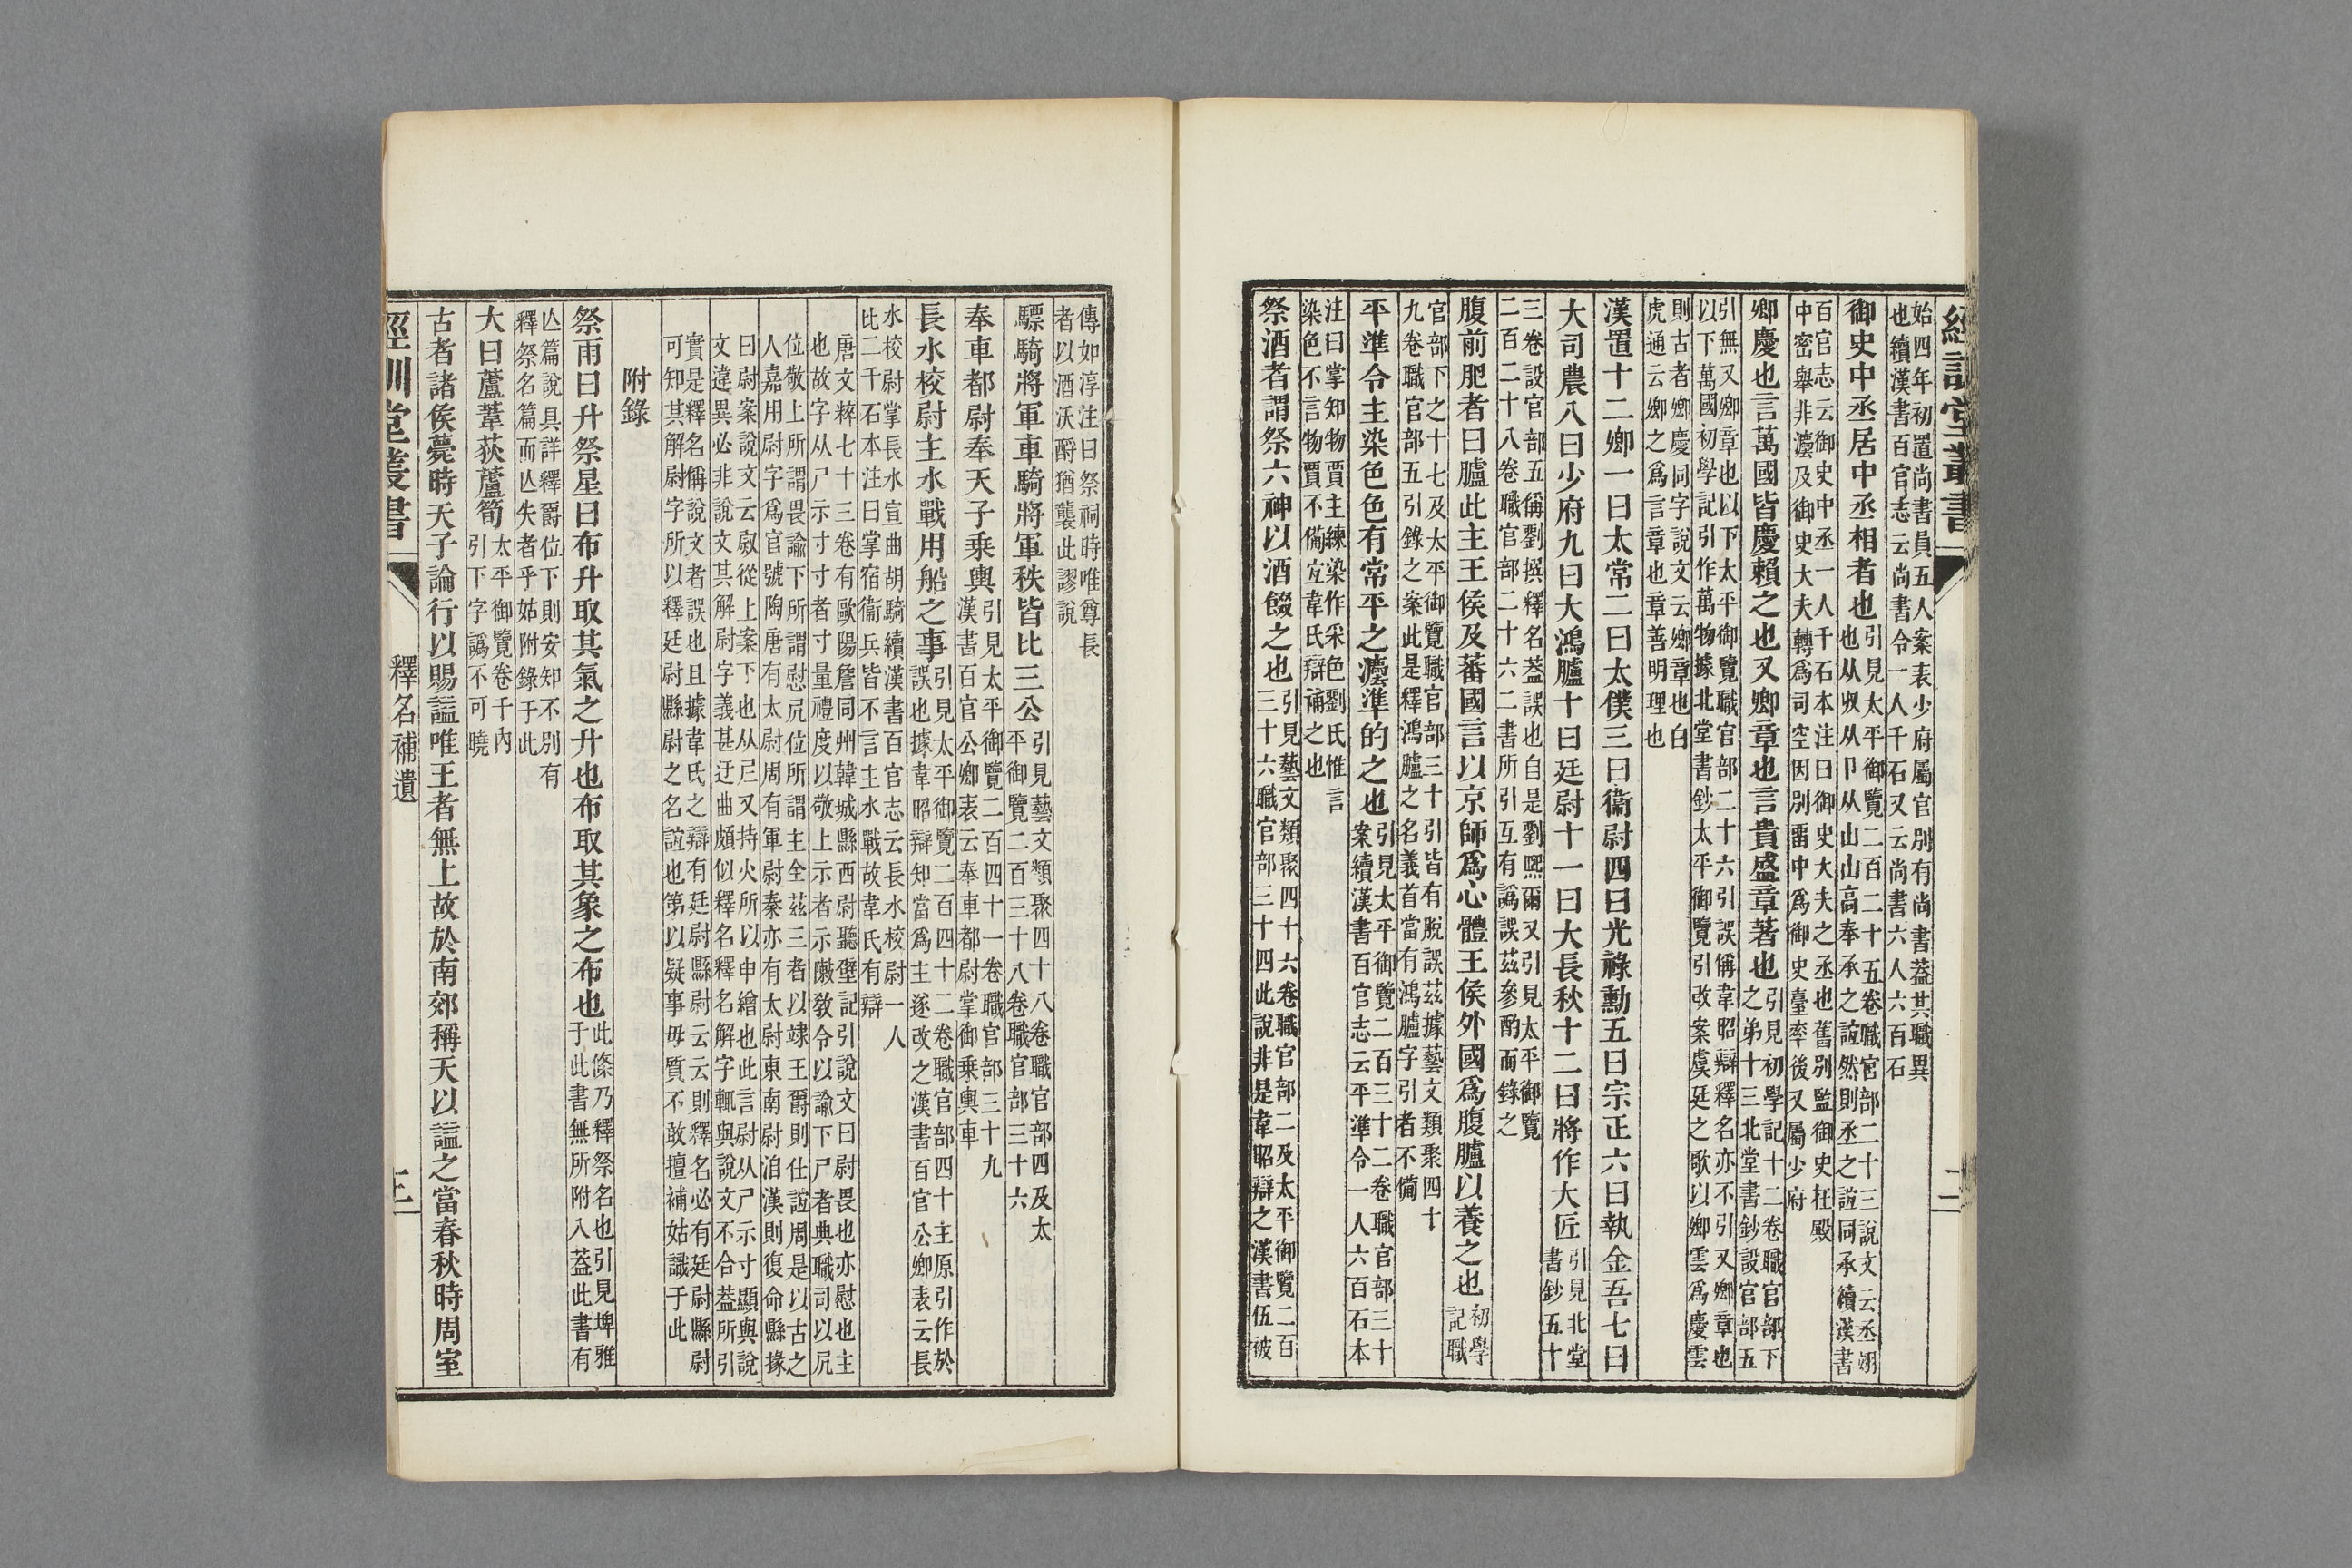 經訓堂叢書
二
始四年初置尚書員五人案表少府屬官別有尚書蓋其職異
也續漢書百官志云尚書令一人千石又云尚書六人六百石
御史中丞居中丞相者也
引見太平御覽二百二十五卷職官部二十三說文云丞翊
也从収从卩从山山高奉承之誼然則丞之誼同承續漢書
百官志云御史中丞一人千石本注曰御史大夫之丞也舊別監御史在殿
中密舉非灋及御史大夫轉爲司空因別畱中爲御史臺率後又屬少府
卿慶也言萬國皆慶賴之也又卿章也言貴盛章著也
引見初學記十二卷職官部下
之弟十三北堂書鈔設官部五
引無又卿章也以下太平御覽職官部二十六引誤偁韋昭辯釋名亦不引又卿章也
以下萬國初學記引作萬物據北堂書鈔太平御覽引改案虞廷之歌以卿雲爲慶雲
則古者卿慶同字說文云卿章也白
虎通云卿之爲言章也章善明理也
漢置十二卿一曰太常二曰太僕三曰衞尉四曰光祿勳五曰宗正六曰執金吾七曰
大司農八曰少府九曰大鴻臚十曰廷尉十一曰大長秋十二曰將作大匠
引見北堂
書鈔五十
三卷設官部五偁劉撰釋名蓋誤也自是劉熙爾又引見太平御覽
二百二十八卷職官部二十六二書所引互有譌誤茲參酌而錄之
腹前肥者曰臚此主王侯及蕃國言以京師爲心體王侯外國爲腹臚以養之也
初學
記職
官部下之十七及太平御覽職官部三十引皆有脫誤茲據藝文類聚四十
九卷職官部五引錄之案此是釋鴻臚之名義首當有鴻臚字引者不備
平準令主染色色有常平之灋準的之也
引見太平御覽二百三十二卷職官部三十
案續漢書百官志云平準令一人六百石本
注曰掌知物賈主練染作采色劉氏惟言
染色不言物賈不備宐韋氏辯補之也
祭酒者謂祭六神以酒餟之也
引見藝文類聚四十六卷職官部二及太平御覽二百
三十六職官部三十四此說非是韋昭辯之漢書伍被
傳如淳注曰祭祠時唯尊長
者以酒沃酹猶襲此謬說
驃騎將軍車騎將軍秩皆比三公
引見藝文類聚四十八卷職官部四及太
平御覽二百三十八卷職官部三十六
奉車都尉奉天子乘輿
引見太平御覽二百四十一卷職官部三十九
漢書百官公卿表云奉車都尉掌御乘輿車
長水校尉主水戰用船之事
引見太平御覽二百四十二卷職官部四十主原引作於
誤也據韋昭辯知當爲主逐改之漢書百官公卿表云長
水校尉掌長水宣曲胡騎續漢書百官志云長水校尉一人
比二千石本注曰掌宿衞兵皆不言主水戰故韋氏有辯
唐文粹七十三卷有歐陽詹同州韓城縣西尉聽壁記引說文曰尉畏也亦慰也主
也故字从尸示寸寸者寸量禮度以敬上示者示敶敎令以諭下尸者典職司以尻
位敬上所謂畏諭下所謂慰尻位所謂主全茲三者以竦王爵則仕誼周是以古之
人嘉用尉字爲官號陶唐有太尉周有軍尉秦亦有太尉東南尉洎漢則復命縣掾
曰尉案說文云㷉從上案下也从𡰥又持火所以申繒也此言尉从尸示寸顯與說
文違異必非說文其解尉字義甚迂曲頗似釋名釋名解字輒與說文不合蓋所引
實是釋名偁說文者誤也且據韋氏之辯有廷尉縣尉云云則釋名必有廷尉縣尉
可知其解尉字所以釋廷尉縣尉之名誼也第以疑事毋質不敢擅補姑識于此
附錄
祭雨曰升祭星曰布升取其氣之升也布取其象之布也
此條乃釋祭名也引見埤雅
于此書無所附入蓋此書有
亾篇說具詳釋爵位下則安知不別有
釋祭名篇而亾失者乎姑附錄于此
大曰蘆葦荻蘆筍
太平御覽卷千內
引下字譌不可曉
古者諸侯薨時天子論行以賜諡唯王者無上故於南郊稱天以諡之當春秋時周室
經訓堂叢書
釋名補遺
三